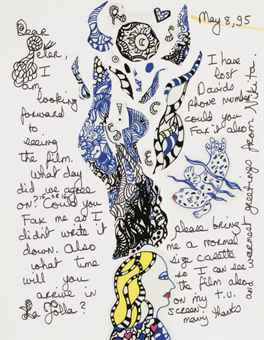 May 8, 95
Dear
Peter,
I
am
looking
forward
to
seeing
the film.
What day
did we agree
on?
Could you
Fax me as I
didn't write it
down. Also
what time
will you
arrive in
La Jolla?
I have
lost
Davids
phone number
could you
Fax it also
please bring
me a normal
size casette
so I can see
the film also
on my T.V.
screen.
many thanks
and
warmest greetings from Niki